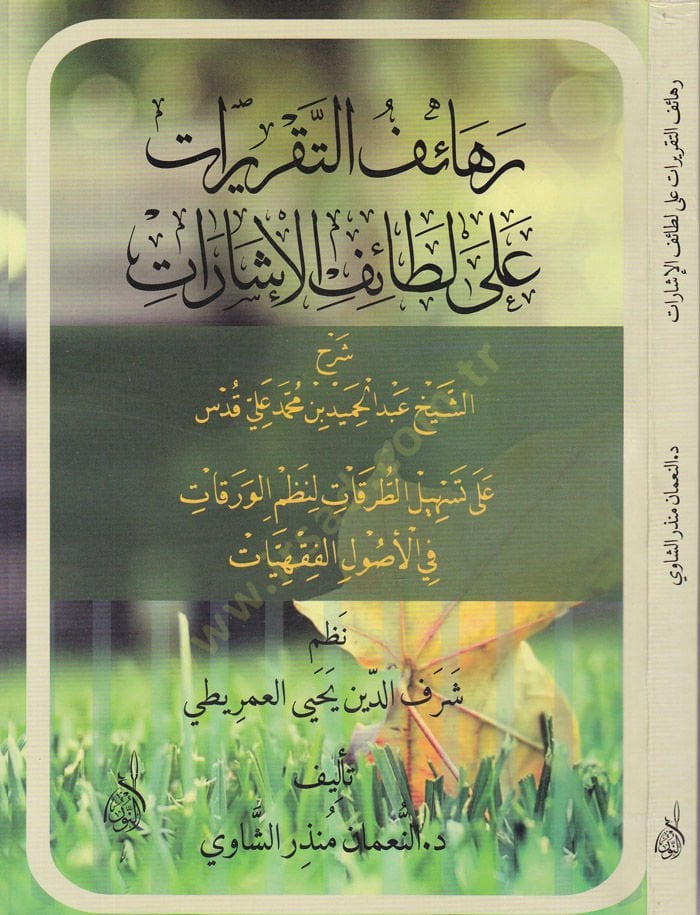 رَهَائِفُ التَّقْرِيرَات
عَلَى لَطَائِفِ الْإِشَارَاتِ
شَرْح
الشَّيْخ عَبْد الْحَمِيد بْن مُحَمَّد عَلِي قُدْس
عَلَى تَسْهِيلِ الطُّرُقَاتِ لِنَظْمِ الوَرَقَاتِ
فِي الْأُصُولِ الفِقْهِيَّاتْ
نَظم
شَرَف الدّين يَحيَى العمريطي
تأليف
د. النُّعمان مُنذِر الشَّاوي
النور
رهائف التقريرات على لطائف الإشارات
د. النعمان منذر الشاوي